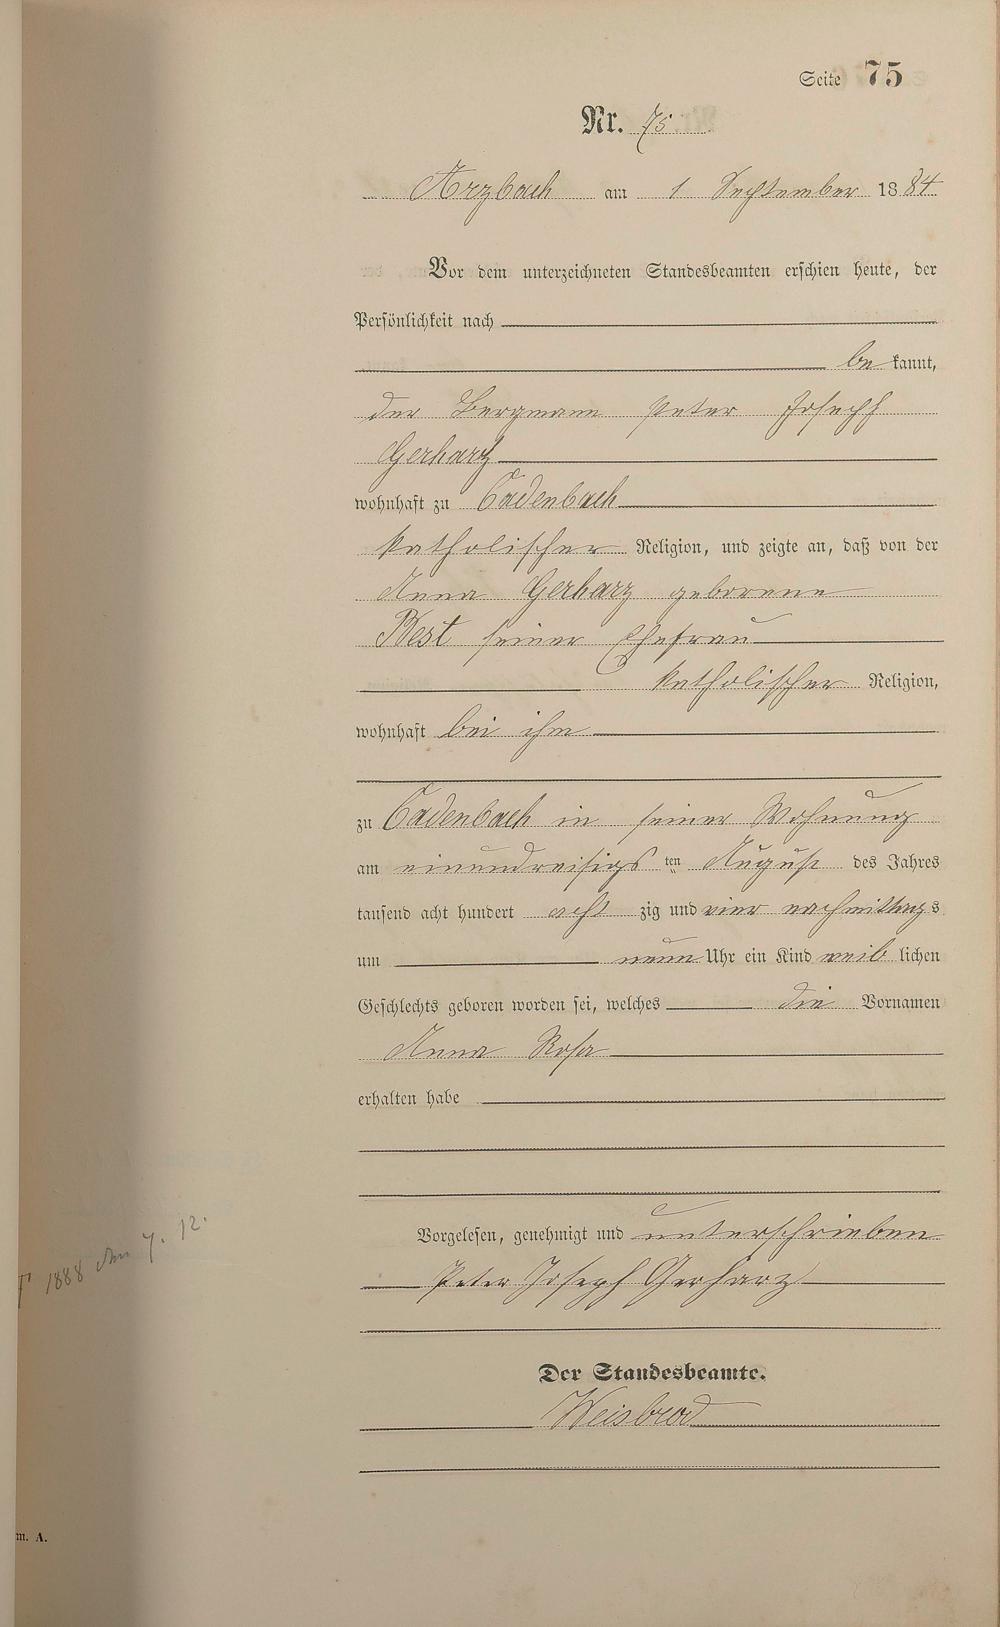 Seite 75
Nr. 75
Arzbach am 1 September 1884
Vor dem unterzeichneten Standesbeamten erschien heute, der
Persönlichkeit nach
be kannt,
der Bergmann Peter Joseph
Gerharz
wohnhaft zu Cadenbach
katholischer Religion, und zeigte an, daß von der
Anna Gerharz geborene
Best seiner Ehefrau
katholischer Religion,
wohnhaft bei ihm
zu Cadenbach in seiner Wohnung
am einundreisigs ten August des Jahres
tausend acht hundert acht zig und vier nachmittags
um neun Uhr ein Kind weib lichen
Geschlechts geboren worden sei, welches die Vornamen
Anna Rosa
erhalten habe
Vorgelesen, genehmigt und unterschrieben
Peter Joseph Gerharz
† 1888 den 7. 12.
Der Standesbeamte.
Weisbrod
m. A.